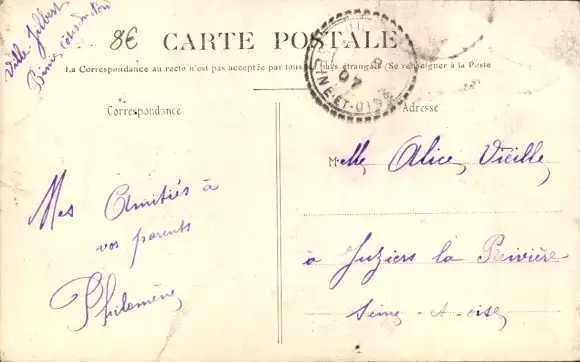 Ville Gilbert
Binic Côtes du Nord
8€
CARTE POSTALE
La Correspondance au recto n'est pas acceptée par tous les pays étrangers (Se renseigner à la Poste
Correspondance
Adresse
Mes Amitiés à
vos parents
Philomène
Mlle Alice Vieille
à Juziers la Reivière
Seine-et-oise
07
SEINE-ET-OISE